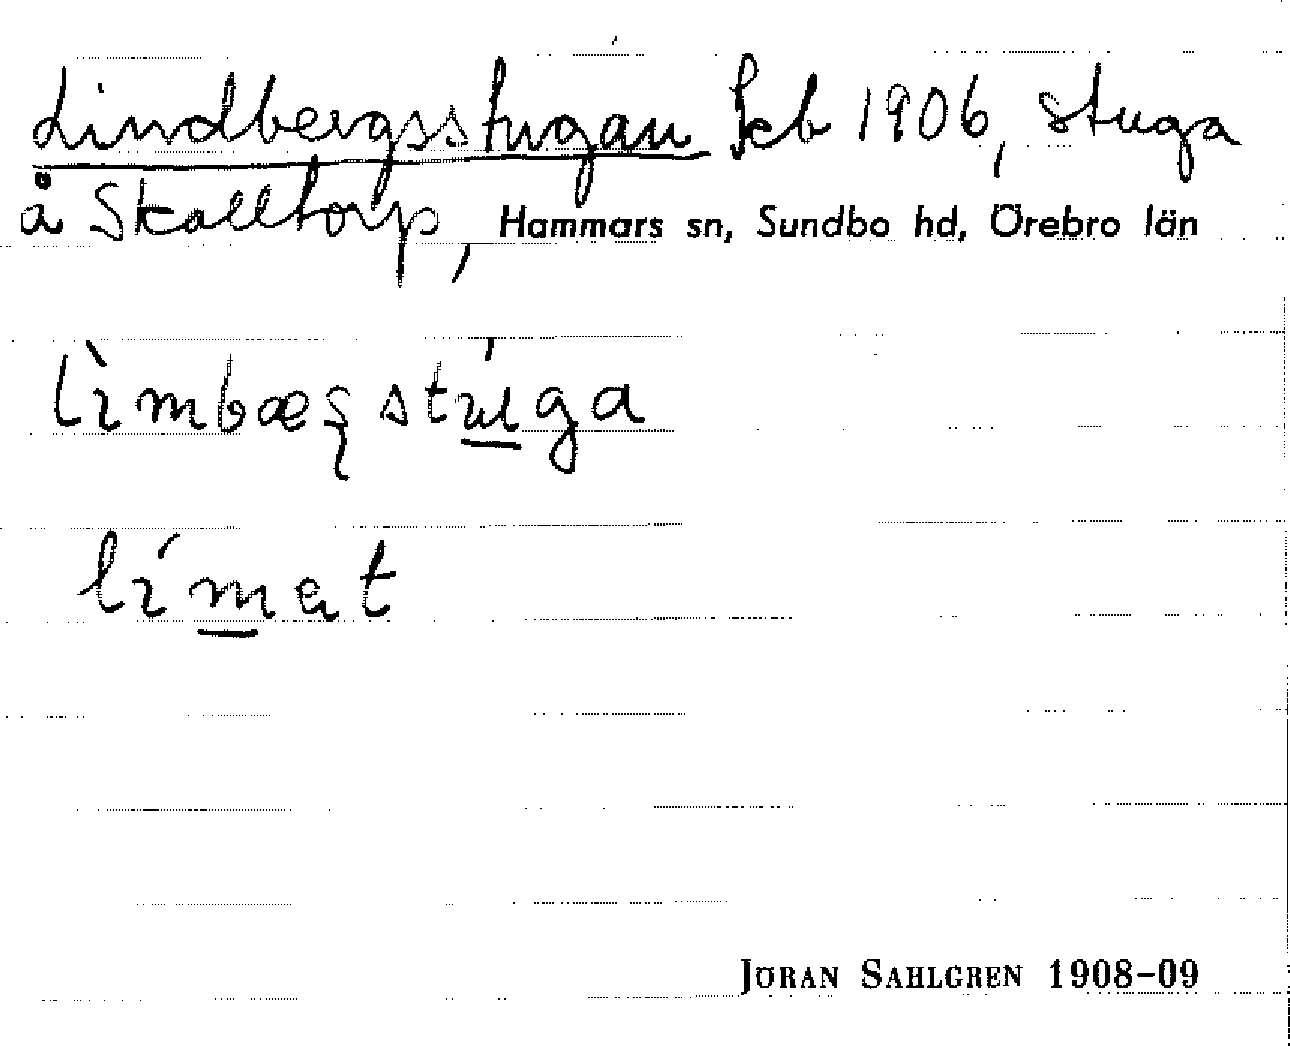 Lindbergsstugan Hcb 1906, stuga
å Skalltorp, Hammars sn, Sundbo hd, Örebro län
lìmbæꞩstúga
límat
JÖRAN SAHLGREN 1908–09